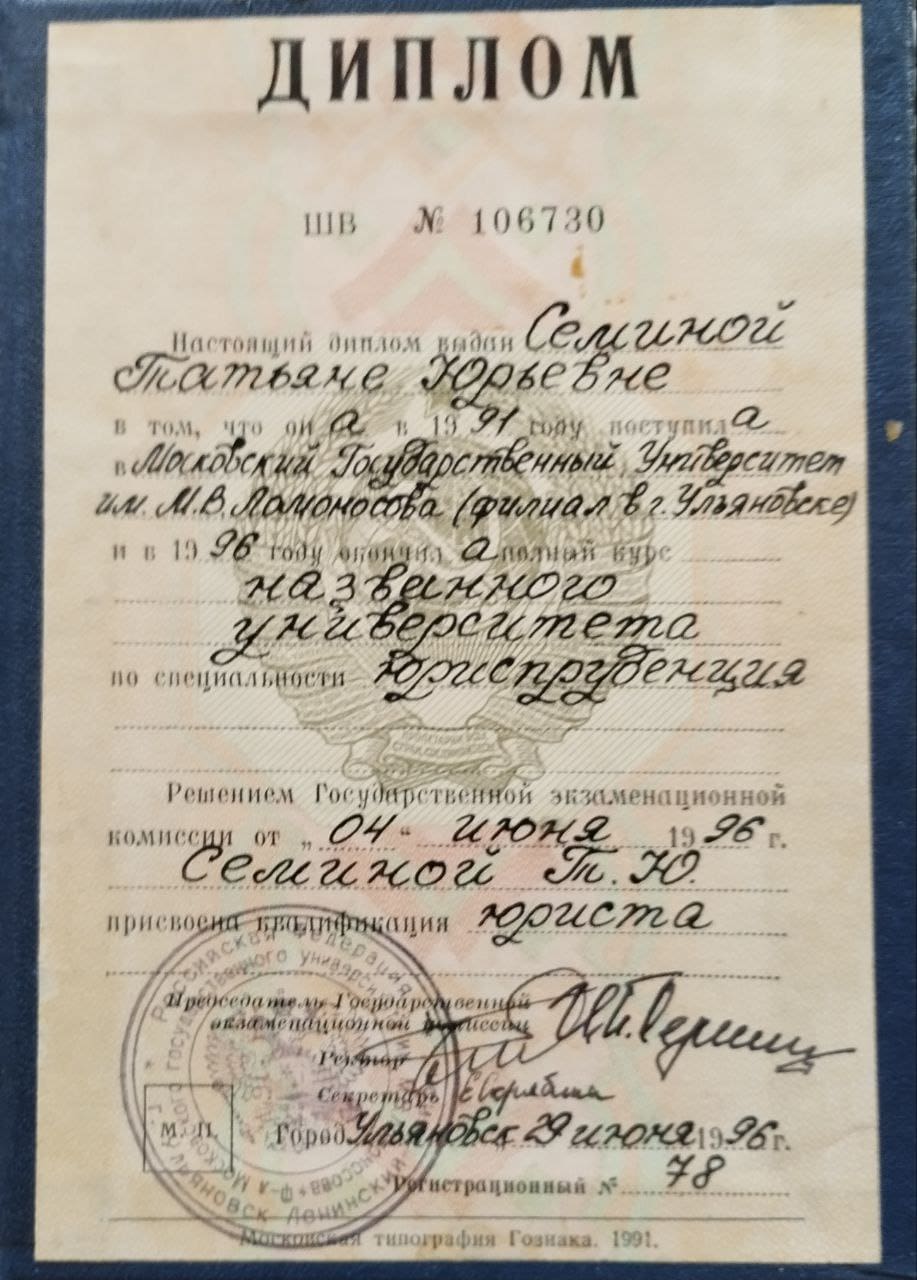 ДИПЛОМ
ШВ № 106730
Настоящий диплом выдан Семиной
Татьяне Юрьевне
в том, что он а в 1991 году поступил а
в Московский Государственный Университет
им. М.В. Ломоносова (филиал в г. Ульяновске)
и в 1996 году окончил а полный курс
названного
университета
по специальности юриспруденция
ПРОЛЕТАРИИ ВСЕХ
СТРАН, СОЕДИНЯЙТЕСЬ!
Решением Государственной экзаменационной
комиссии от „04“ июня 1996 г.
Семиной Т. Ю.
присвоена квалификация юриста
Российская Федерация
Председатель Государственной
экзаменационной комиссии
Ректор
Секретарь
М. П.
Город Ульяновск 29 июня 1996 г.
Регистрационный № 78
Московская типография Гознака. 1991.